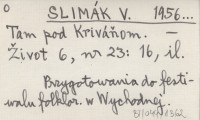 O SLIMÁK V. 1956...
Tam pod Kriváňom. —
Život 6, nr 23: 16, il.
Przygotowania do festi-
walu folklor. w Wychodnej.